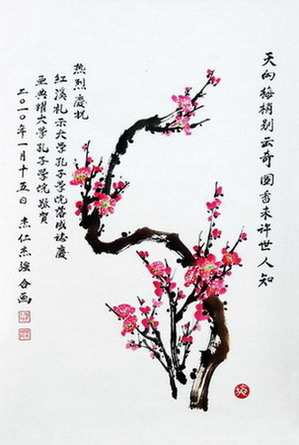 天向梅梢别出奇 国香未许世人知
热烈庆祝
大学孔子学院落成志庆
亚典耀大学孔子学院敬贺
二〇一〇年一月十五日 杰仁杰强合画